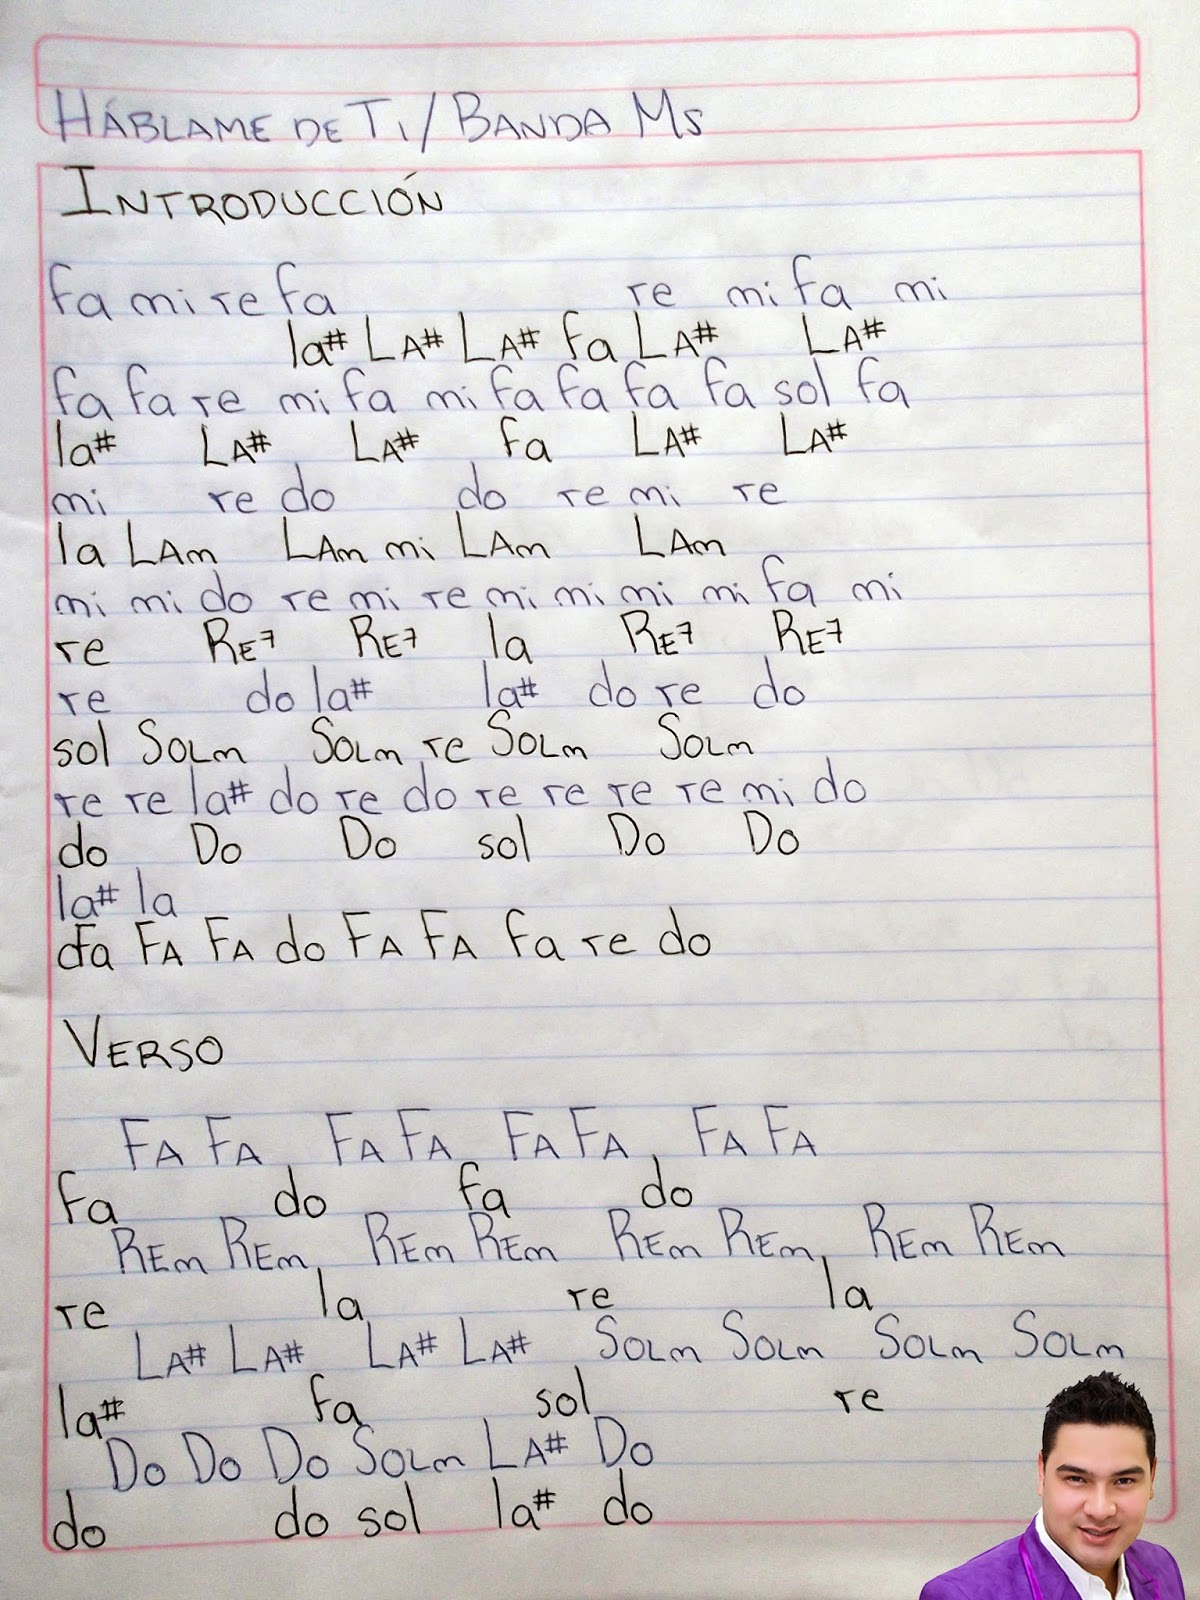 HÁBLAME DE TI / BANDA MS
INTRODUCCIÓN
fa mi re fa re mi fa mi
la# LA# LA# fa LA# LA#
fa fa re mi fa mi fa fa fa fa sol fa
la# LA# LA# fa LA# LA#
mi re do do re mi re
la LAm LAm mi LAm LAm
mi mi do re mi re mi mi mi mi fa mi
re RE7 RE7 la RE7 RE7
re do la# la# do re do
sol SOLm SOLm re SOLm SOLm
re re la# do re do re re re re mi do
do DO DO sol DO DO
la# la
fa FA FA do FA FA fa re do
VERSO
FA FA FA FA FA FA FA FA
fa do fa do
REm REm REm REm REm REm REm REm
re la re la
LA# LA# LA# LA# SOLm SOLm SOLm SOLm
la# fa sol re
DO DO DO SOLm LA# DO
do do sol la# do